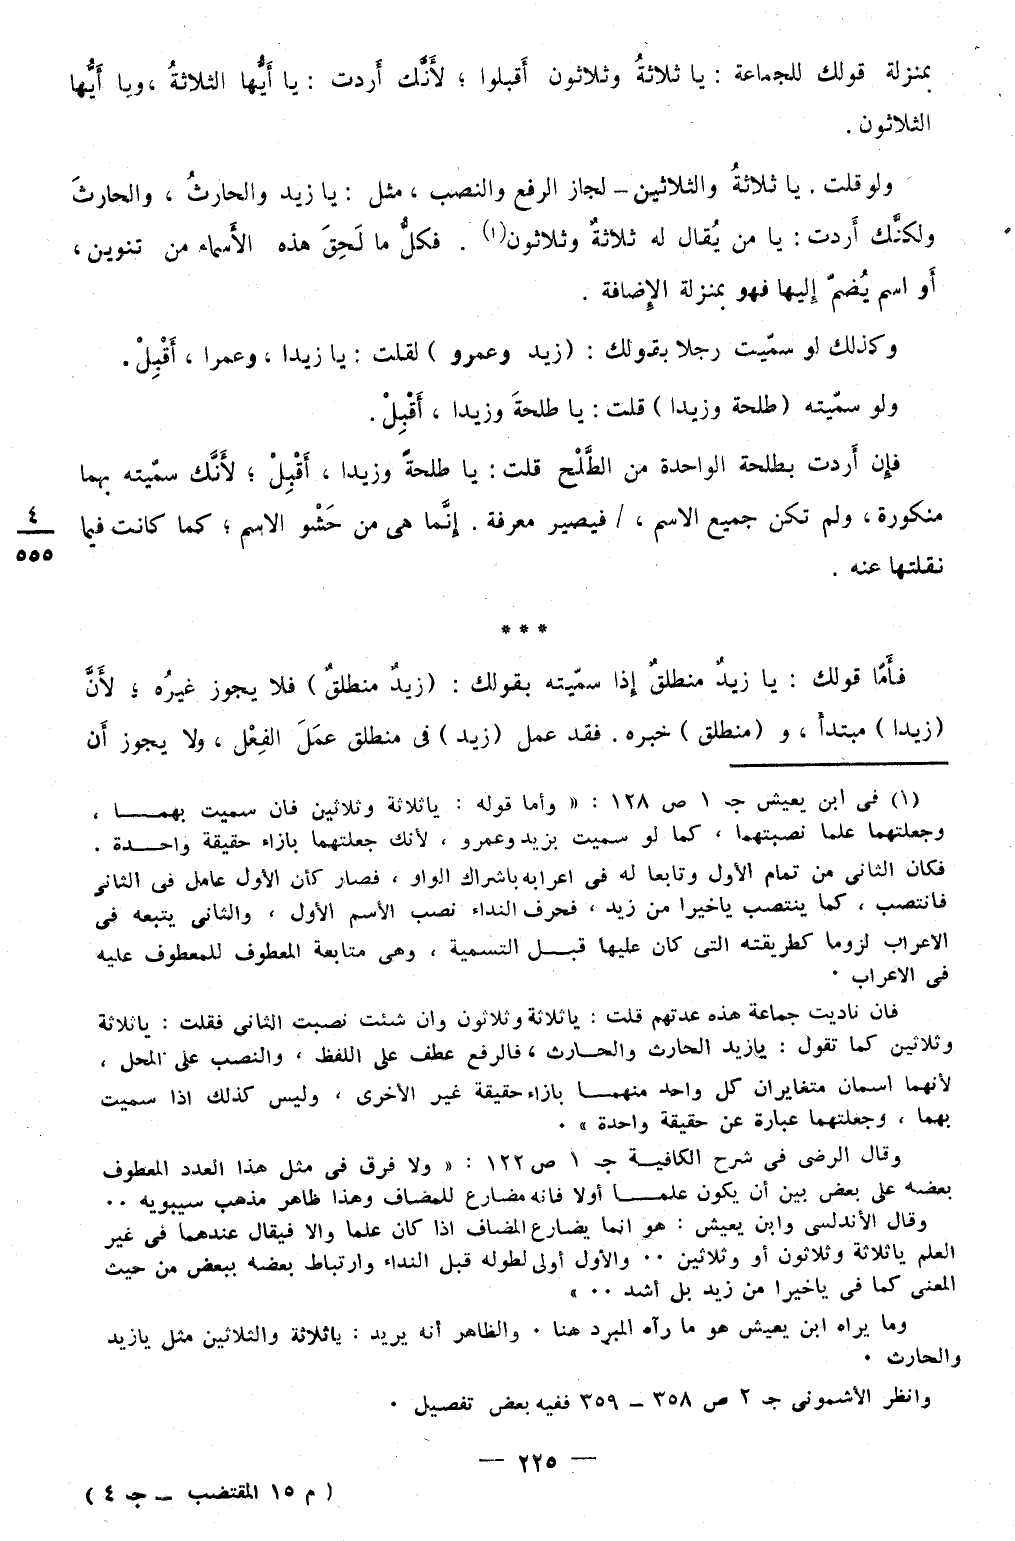 بمنزلة قولك للجماعة : يا ثلاثةُ وثلاثون أَقبلوا ؛ لأَنَّك أَردت : يا أَيُّها الثلاثةُ ، ويا أَيُّها
الثلاثون .
ولو قلت . يا ثلاثةُ والثلاثين – لجاز الرفع والنصب ، مثل : يا زيد والحارثُ ، والحارثَ
ولكنَّك أَردت : يا من يُقال له ثلاثةٌ وثلاثون(١) . فكلُّ ما لَحِقَ هذه الأَسماء من تنوين ،
أَو اسم يُضمّ إليها فهو بمنزلة الإِضافة .
وكذلك لو سمّيت رجلا بقولك : ( زيد وعمرو ) لقلت : يا زيدا ، وعمرا ، أَقْبِلْ .
ولو سمّيته ( طلحة وزيدا ) قلت : يا طلحةَ وزيدا ، أَقْبِلْ .
فإِن أَردت بطلحة الواحدة من الطَّلْح قلت : يا طلحةً وزيدا ، أَقْبِلْ ؛ لأَنَّك سمّيته بهما
منكورة ، ولم تكن جميع الاسم ، / فيصير معرفة . إِنَّما هى من حَشْو الاسم ؛ كما كانت فيما
٤
٥٥٥
نقلتها عنه .
* * *
فأَمّا قولك : يا زيدٌ منطلقٌ إِذا سمّيته بقولك : ( زيدٌ منطلقٌ ) فلا يجوز غيرُه ؛ لأَنَّ
( زيدا ) مبتدأ ، و ( منطلق ) خبره . فقد عمل ( زيد ) فى منطلق عمَلَ الفِعْل ، ولا يجوز أَن
(١) فى ابن يعيش جـ ١ ص ١٢٨ : « وأما قوله : ياثلاثة وثلاثين فان سميت بهما ،
وجعلتهما علما نصبتهما ، كما لو سميت بزيد وعمرو ، لأنك جعلتهما بازاء حقيقة واحدة .
فكان الثانى من تمام الأول وتابعا له فى اعرابه باشراك الواو ، فصار كأن الأول عامل فى الثانى
فانتصب ، كما ينتصب ياخيرا من زيد ، فحرف النداء نصب الأسم الأول ، والثانى يتبعه فى
الاعراب لزوما كطريقته التى كان عليها قبل التسمية ، وهى متابعة المعطوف للمعطوف عليه
فى الاعراب ٠
فان ناديت جماعة هذه عدتهم قلت : ياثلاثة وثلاثون وان شئت نصبت الثانى فقلت : ياثلاثة
وثلاثين كما تقول : يازيد الحارث والحارث ، فالرفع عطف على اللفظ ، والنصب على المحل ،
لأنهما اسمان متغايران كل واحد منهما بازاء حقيقة غير الأخرى ، وليس كذلك اذا سميت
بهما ، وجعلتهما عبارة عن حقيقة واحدة » ٠
وقال الرضى فى شرح الكافية جـ ١ ص ١٢٢ : « ولا فرق فى مثل هذا العدد المعطوف
بعضه على بعض بين أن يكون علما أولا فانه مضارع للمضاف وهذا ظاهر مذهب سيبويه ٠٠
وقال الأندلسى وابن يعيش : هو انما يضارع المضاف اذا كان علما والا فيقال عندهما فى غير
العلم ياثلاثة وثلاثون أو وثلاثين ٠٠ والأول أولى لطوله قبل النداء وارتباط بعضه ببعض من حيث
المعنى كما فى ياخيرا من زيد بل أشد ٠٠ »
وما يراه ابن يعيش هو ما رآه المبرد هنا ٠ والظاهر أنه يريد : ياثلاثة والثلاثين مثل يازيد
والحارث ٠
وانظر الأشمونى جـ ٢ ص ٣٥٨ – ٣٥٩ ففيه بعض تفصيل ٠
— ٢٢٥ —
( م ١٥ المقتضب – جـ ٤ )